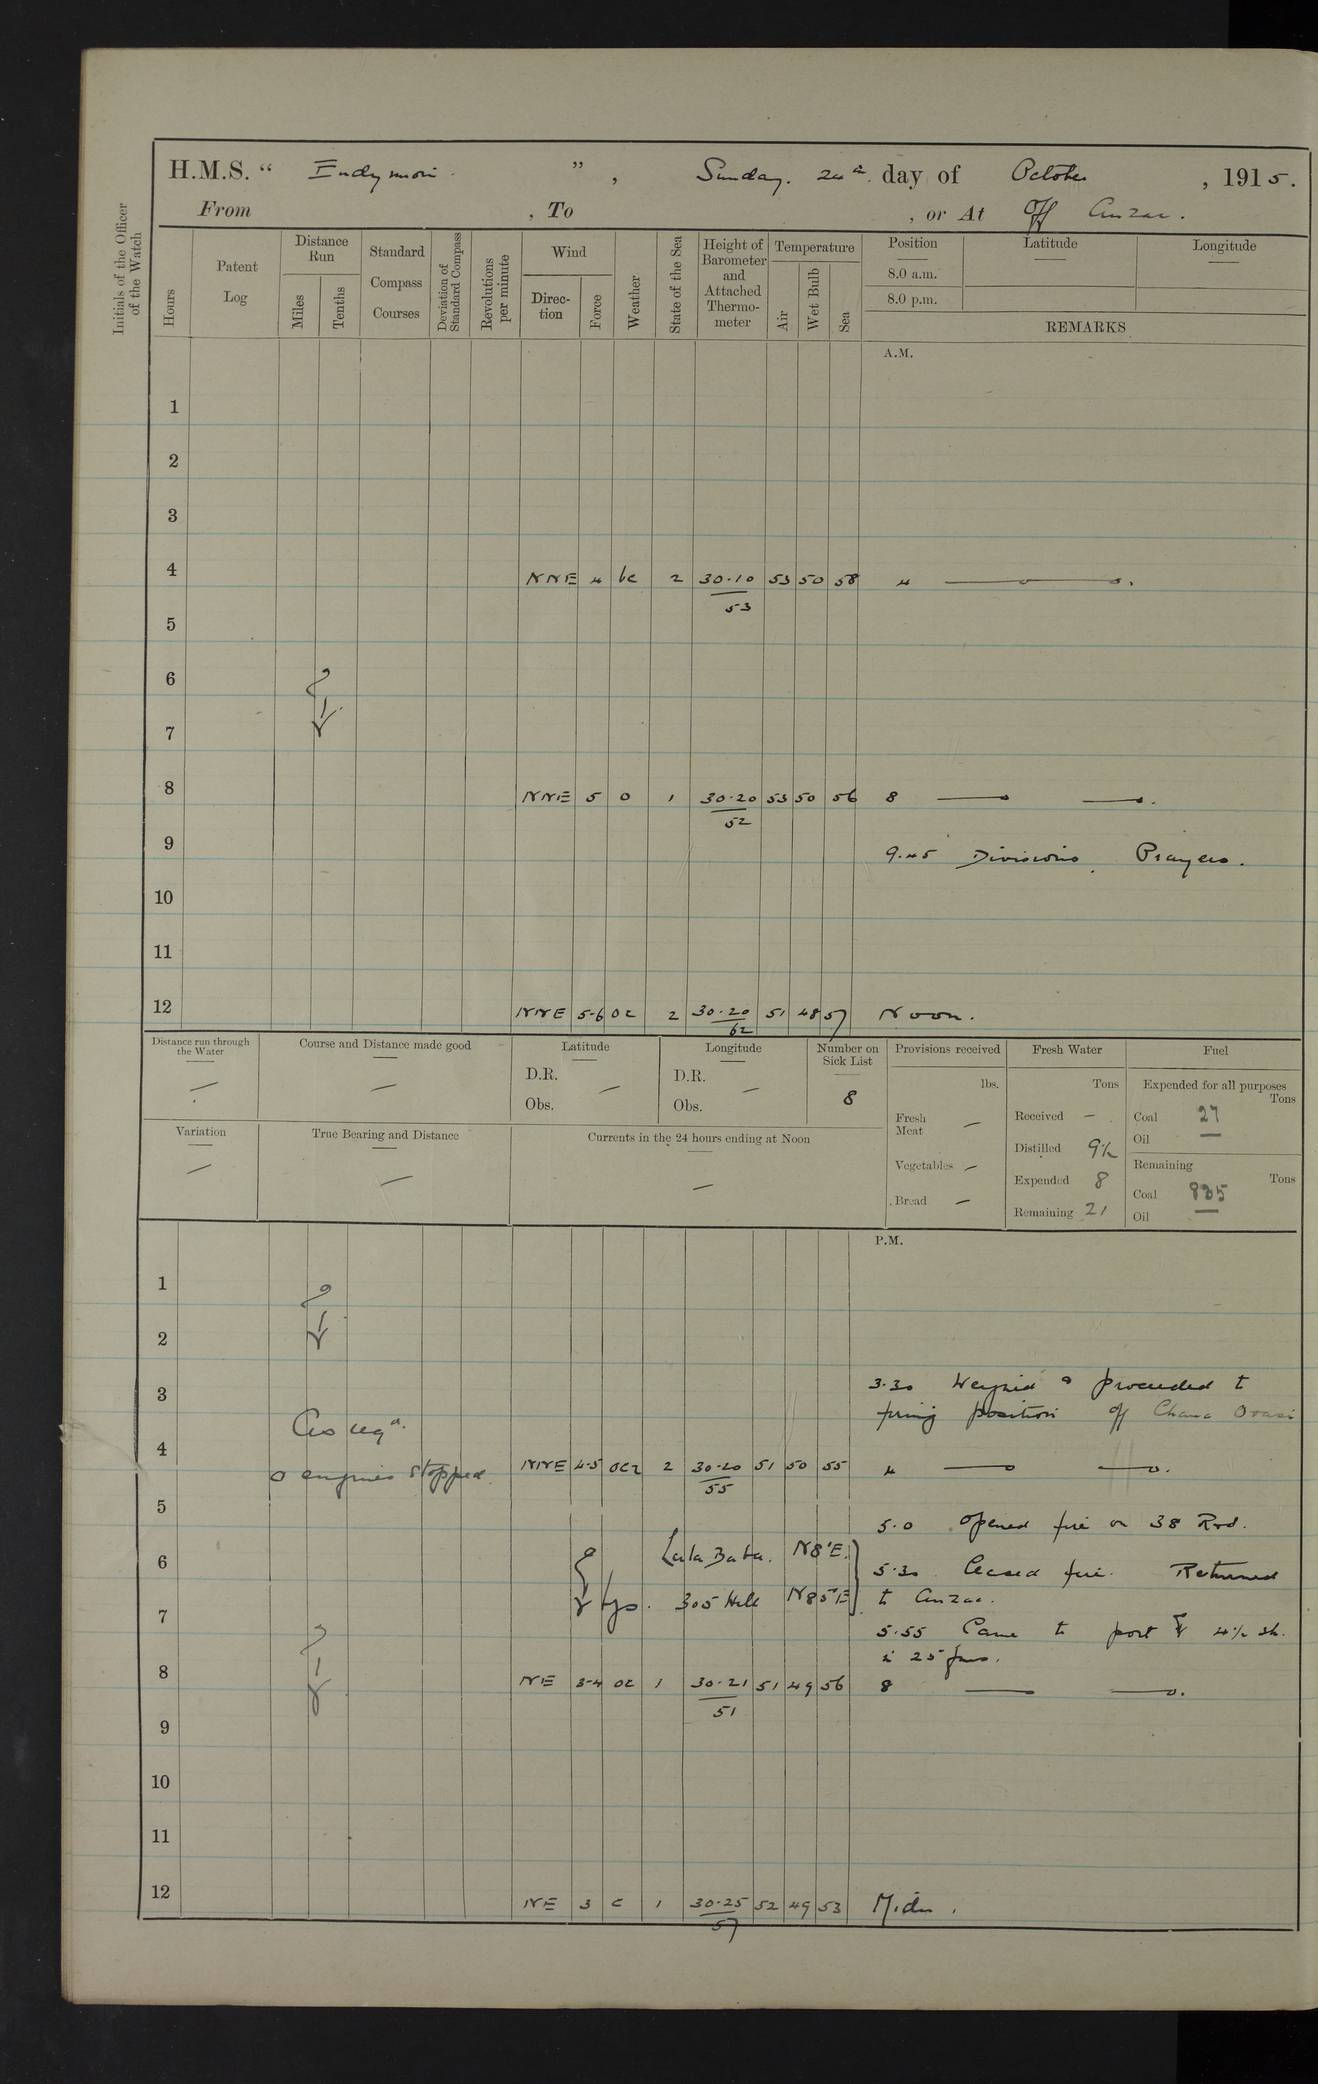 H.M.S. “ Endymion ” , Sunday. 24th day of October , 1915.
From , To , or At Off Anzac.
Initials of the Officer of the Watch
Hours
Patent Log
Distance Run
Miles
Tenths
Standard Compass Courses
Deviation of Standard Compass
Revolutions per minute
Wind
Direc-tion
Force
Weather
State of the Sea
Height of Barometer and Attached Thermo-meter
Temperature
Air
Wet Bulb
Sea
Position Latitude Longitude
8.0 a.m.
8.0 p.m.
REMARKS
A.M.
1
2
3
4 NNE 4 bc 2 30.10 53 50 58 4 —
53
5
6
7
8 NNE 5 o 1 30.20 53 50 56 8 — —.
52
9 9.45 Divisions, Prayers.
10
11
12 NNE 5-6 oc 2 30.20 51 48 57 Noon.
62
Distance run through the Water
—
Course and Distance made good
—
Latitude
D.R. —
Obs.
Longitude
D.R. —
Obs.
Number on Sick List
8
Variation
—
True Bearing and Distance
—
Currents in the 24 hours ending at Noon
—
Provisions received
lbs.
Fresh Meat —
Vegetables —
Bread —
Fresh Water
Tons
Received —
Distilled 9½
Expended 8
Remaining 21
Fuel
Expended for all purposes
Tons
Coal 27
Oil —
Remaining
Tons
Coal 835
Oil —
P.M.
1
2
3 3.30 Weighed & proceeded to
firing position off
As reqd.
4 o engines stopped. NNE 4-5 2 30.20 51 50 55 4 — —.
55
5 5.0 Opened fire on 38 Rd.
6 Lala Baba. N8°E. 5.30 Ceased fire. Returned
305 Hill N85°E to Anzac.
7 5.55 Came to port 4½ sh.
in 25 fms.
8 NE 3-4 oc 1 30.21 51 49 56 8 — —.
51
9
10
11
12 NE 3 c 1 30.25 52 49 53 Midn.
57